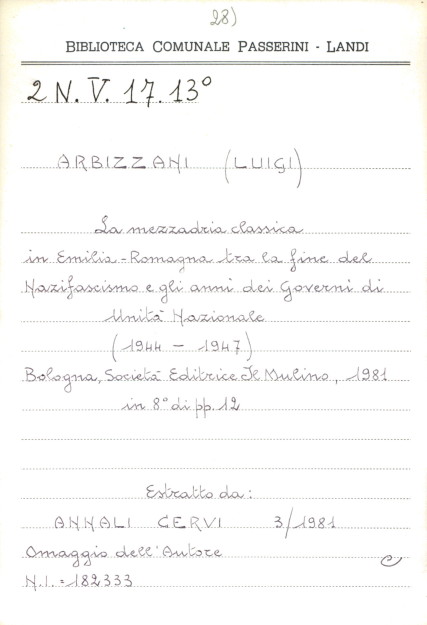 28)
BIBLIOTECA COMUNALE PASSERINI - LANDI
2 N. V. 17. 13°
ARBIZZANI (LUIGI)
La mezzadria classica
in Emilia-Romagna tra la fine del
Nazifascismo e gli anni dei Governi di
Unità Nazionale
(1944 - 1947)
Bologna, Società Editrice Il Mulino, 1981
in 8° di pp. 12
Estratto da:
ANNALI CERVI 3/1981
Omaggio dell'Autore
N.I. = 182333